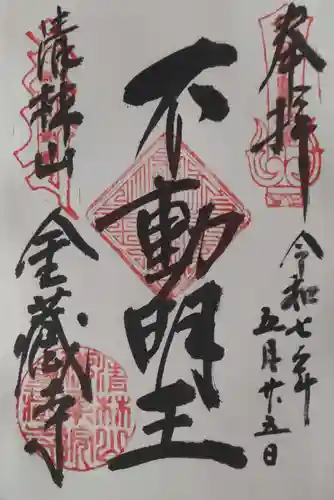 奉拝
令和七年
五月廿五日
不動明王
清林山
金蔵寺